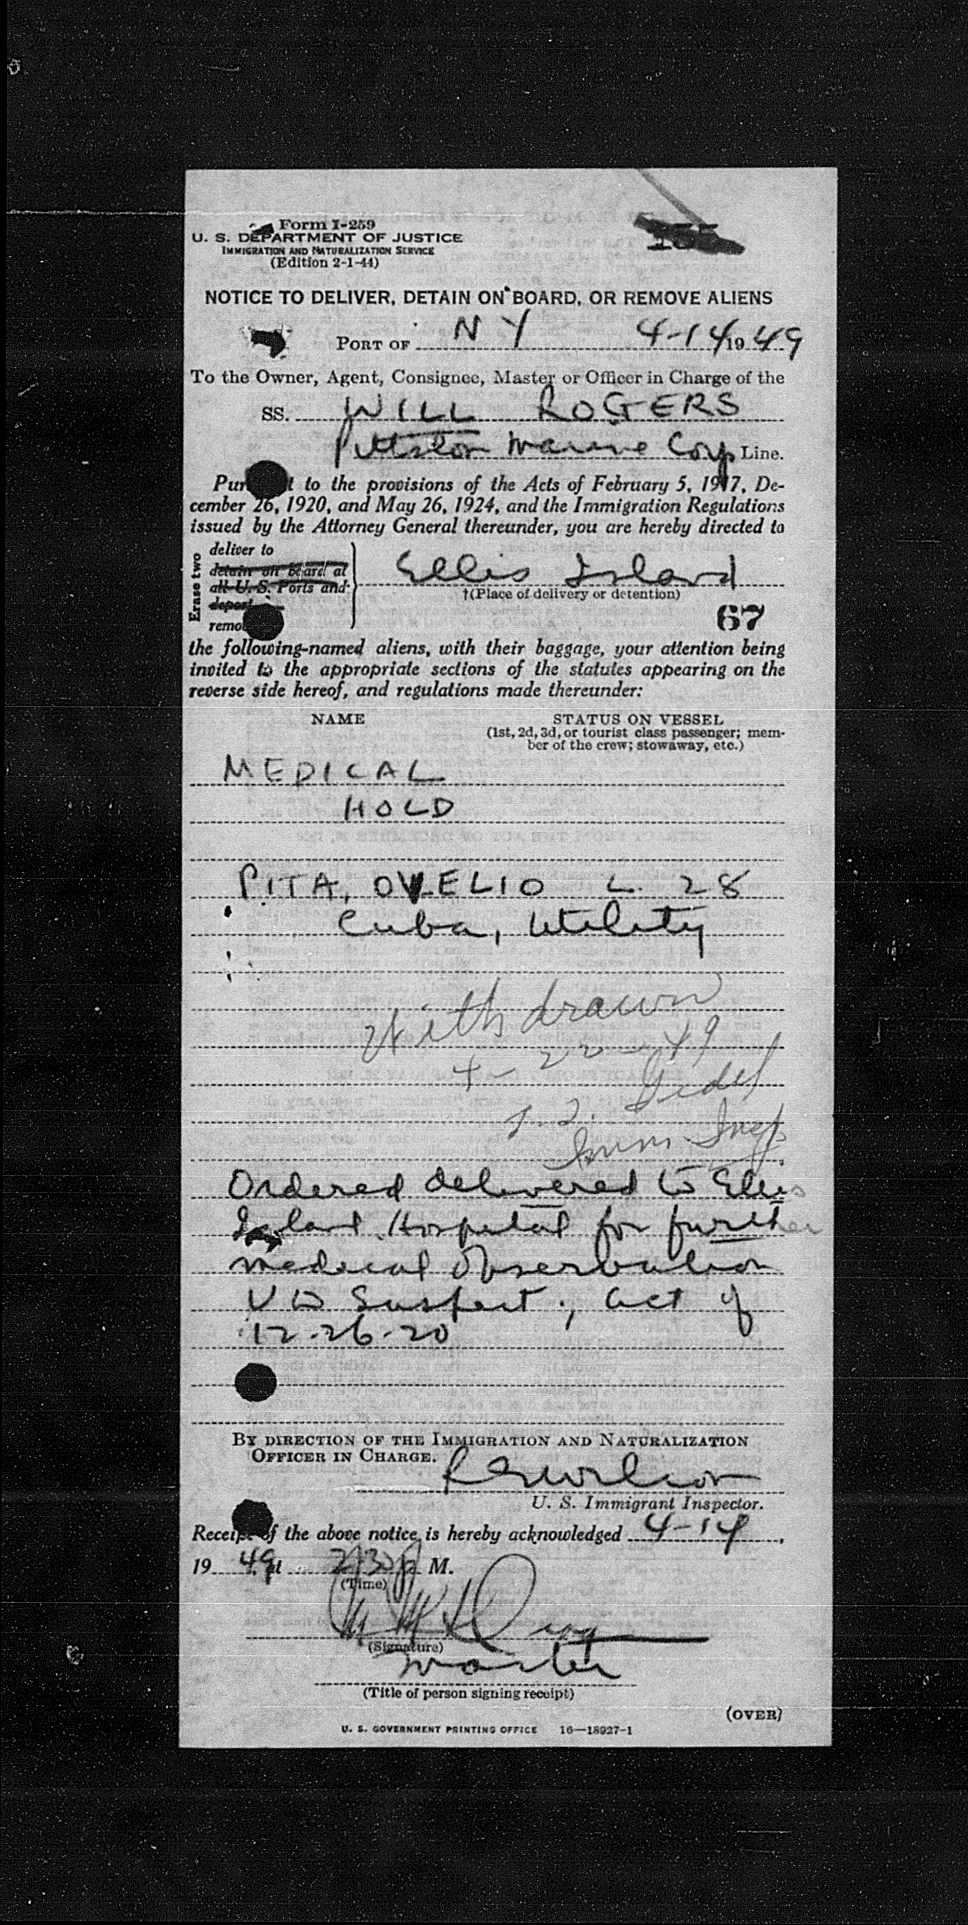 Form I-259
U. S. DEPARTMENT OF JUSTICE
IMMIGRATION AND NATURALIZATION SERVICE
(Edition 2-1-44)
NOTICE TO DELIVER, DETAIN ON BOARD, OR REMOVE ALIENS
PORT OF N Y 4-14 1949
To the Owner, Agent, Consignee, Master or Officer in Charge of the
SS. WILL ROGERS
Pittston Marine Corp Line.
Pursuant to the provisions of the Acts of February 5, 1917, De-
cember 26, 1920, and May 26, 1924, and the Immigration Regulations
issued by the Attorney General thereunder, you are hereby directed to
Erase two
deliver to
detain on board at
all U. S. Ports and
deport
remove
Ellis Island
†(Place of delivery or detention)
67
the following-named aliens, with their baggage, your attention being
invited to the appropriate sections of the statutes appearing on the
reverse side hereof, and regulations made thereunder:
NAME STATUS ON VESSEL
(1st, 2d, 3d, or tourist class passenger; mem-
ber of the crew; stowaway, etc.)
MEDICAL
HOLD
PITA, OVELIO L. 28
Cuba, Utility
Withdrawn
4-22-49
Imm. Insp.
Ordered delivered to Ellis
Island Hospital for further
medical observation
VD Suspect; act of
12-26-20
BY DIRECTION OF THE IMMIGRATION AND NATURALIZATION
OFFICER IN CHARGE.
U. S. Immigrant Inspector.
Receipt of the above notice is hereby acknowledged 4-14,
1949 at 2:30 P M.
(Time)
(Signature)
Master
(Title of person signing receipt)
(OVER)
U. S. GOVERNMENT PRINTING OFFICE 16—18927-1